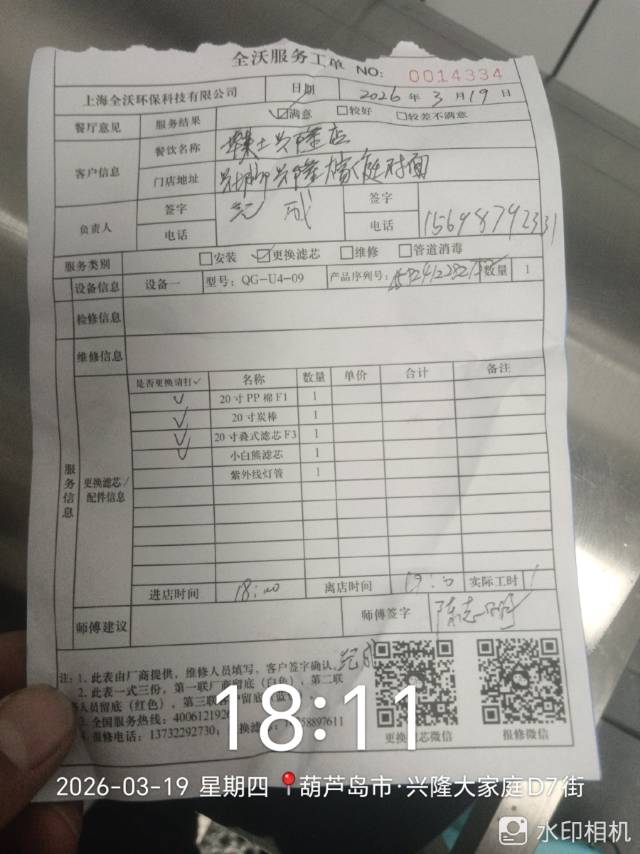 全沃服务工单 NO: 0014334
上海全沃环保科技有限公司 日期 2026 年 3 月 19 日
餐厅意见 服务结果 ☑满意 □较好 □较差不满意
客户信息 餐饮名称 兴隆店
门店地址 兴隆大家庭对面
负责人 签字 签字
电话 电话
服务类别 □安装 ☑更换滤芯 □维修 □管道消毒
设备信息 设备一 型号：QG-U4-09 产品序列号： 数量 1
检修信息
维修信息
服务信息 更换滤芯/配件信息
是否更换请打✓ 名称 数量 单价 合计 备注
✓ 20寸PP棉F1 1
✓ 20寸炭棒 1
✓ 20寸叠式滤芯F3 1
✓ 小白熊滤芯 1
紫外线灯管 1
进店时间 18:00 离店时间 实际工时 1
师傅建议 师傅签字
注：1. 此表由厂商提供，维修人员填写，客户签字确认。
2. 此表一式三份，第一联厂商留底（白色），第二联
人员留底（红色），第三联客户留底
3. 全国服务热线：
4. 报修电话：13732292730
更换滤芯微信 报修微信
18:11
2026-03-19 星期四 葫芦岛市·兴隆大家庭D7街
水印相机